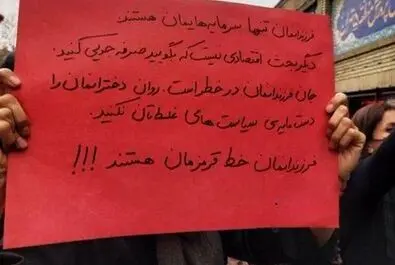 فرزندانمان تنها سرمایه‌هایمان هستند
دیگر بحث اقتصادی نیست که بگویید صرفه جویی کنید.
جان فرزندانمان در خطر است. روان دخترانمان را
دستمایه‌ی سیاست‌های غلطتان نکنید.
فرزندانمان خط قرمزمان هستند !!!